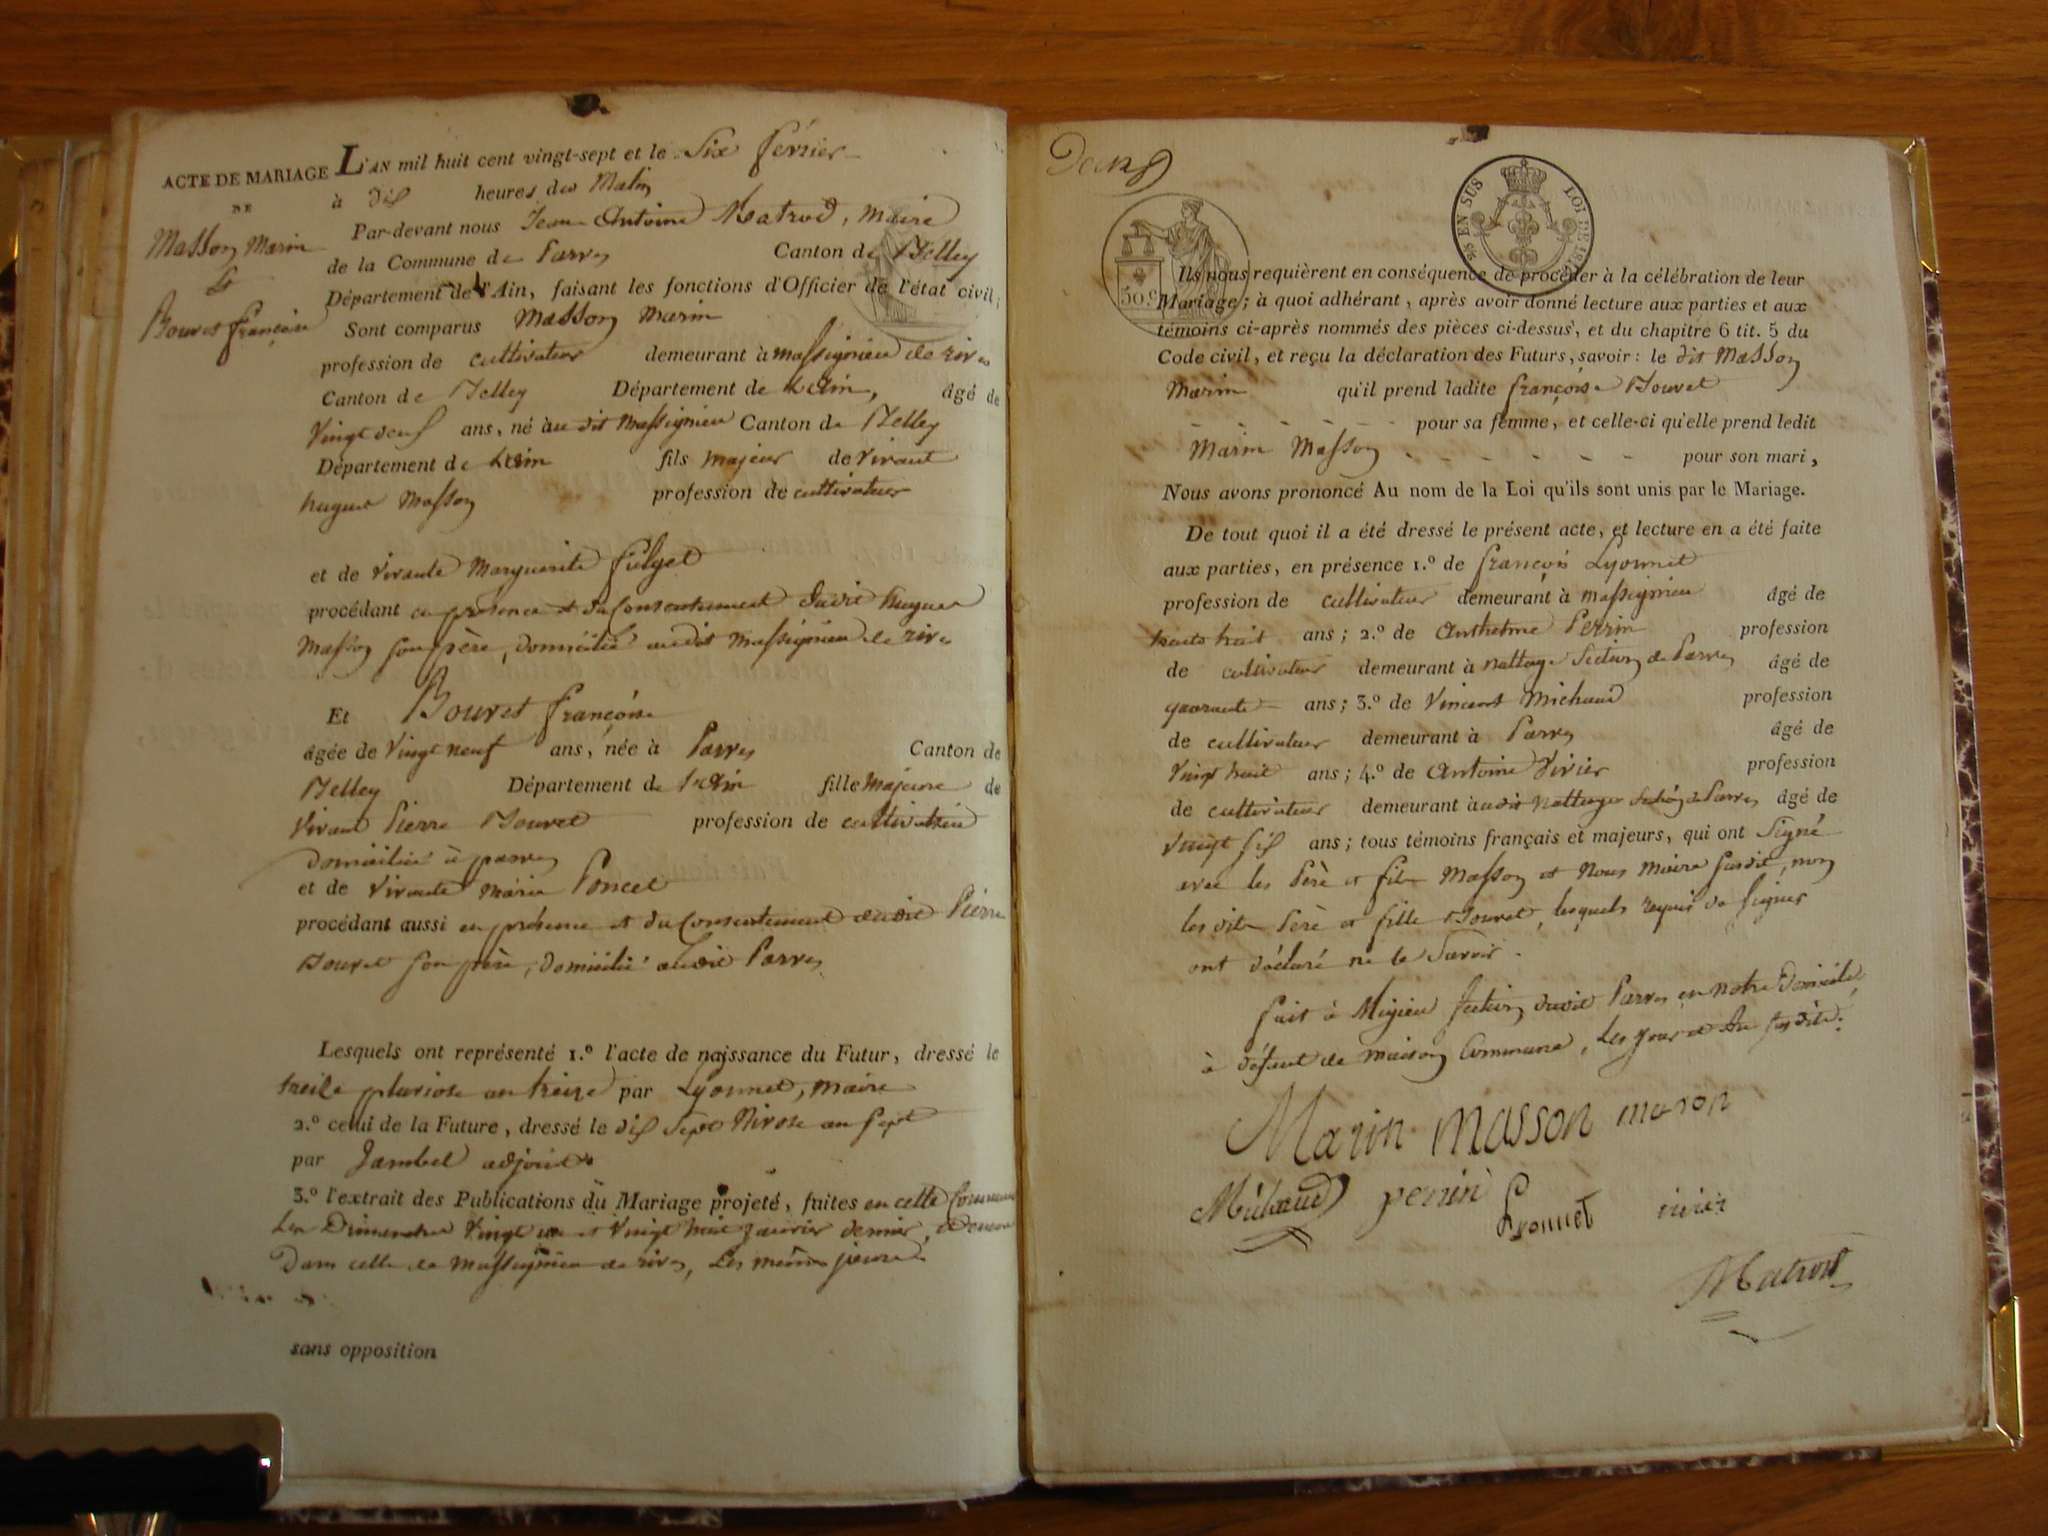 ACTE DE MARIAGE
DE
Masson Marin
&
Bouvet françoise
L'AN mil huit cent vingt-sept et le Six février
à dix heures du Matin
Par-devant nous Jean Antoine Matrod, Maire
de la Commune de Parves Canton de Belley
Département de l'Ain, faisant les fonctions d'Officier de l'état civil;
Sont comparus Masson Marin
profession de cultivateur demeurant à Massignieu de rives
Canton de Belley Département de L'Ain, âgé de
Vingt deux ans, né au dit Massignieu Canton de Belley
Département de L'ain fils majeur de vivant
hugues Masson profession de cultivateur
et de vivante Marguerite
procédant en présence et du Consentement dudit hugues
Masson son père, domicilié audit Massignieu de rives
Et Bouvet françoise
âgée de Vingt neuf ans, née à Parves Canton de
Belley Département de L'Ain fille majeure de
vivant Pierre Bouvet profession de cultivateur
domicilié à parves
et de vivante Marie Poncet
procédant aussi en présence et du Consentement dudit Pierre
Bouvet son père, domicilié audit Parves
Lesquels ont représenté 1.º l'acte de naissance du Futur, dressé le
treize pluviose an treize par Lyonnet, maire
2.º celui de la Future, dressé le dix Sept Nivose an Sept
par Jambet adjoint
3.º l'extrait des Publications du Mariage projeté, faites en cette Commune
Les Dimanches Vingt un et Vingt huit Janvier dernier, et encore
Dans celle de Massignieu de rives, Les mêmes jours
sans opposition
Deux
% EN SUS LOI DE
50.c
Ils nous requièrent en conséquence de procéder à la célébration de leur
Mariage; à quoi adhérant, après avoir donné lecture aux parties et aux
témoins ci-après nommés des pièces ci-dessus, et du chapitre 6 tit. 5 du
Code civil, et reçu la déclaration des Futurs, savoir: le dit Masson
Marin qu'il prend ladite françoise Bouvet
pour sa femme, et celle-ci qu'elle prend ledit
Marin Masson pour son mari,
Nous avons prononcé Au nom de la Loi qu'ils sont unis par le Mariage.
De tout quoi il a été dressé le présent acte, et lecture en a été faite
aux parties, en présence 1.º de françois Lyonnet
profession de cultivateur demeurant à Massignieu âgé de
trente huit ans; 2.º de Anthelme Perrin profession
de cultivateur demeurant à nattage Section de Parves âgé de
quarante ans; 3.º de Vincent Michaud profession
de cultivateur demeurant à Parves âgé de
Vingt huit ans; 4.º de Antoine Vivier profession
de cultivateur demeurant audit nattages Section de Parves âgé de
vingt six ans; tous témoins français et majeurs, qui ont Signé
avec les Père et fils Masson et Nous Maire susdit, non
les dits Père et fille Bouvet, lesquels requis de signer
ont déclaré ne le Savoir.
fait à Migieu Section dudit Parves en notre Domicile,
à défaut de maison Commune, Les jour et An susdits.
Marin Masson mason
Michaud perrin Lyonnet vivier
Matrod